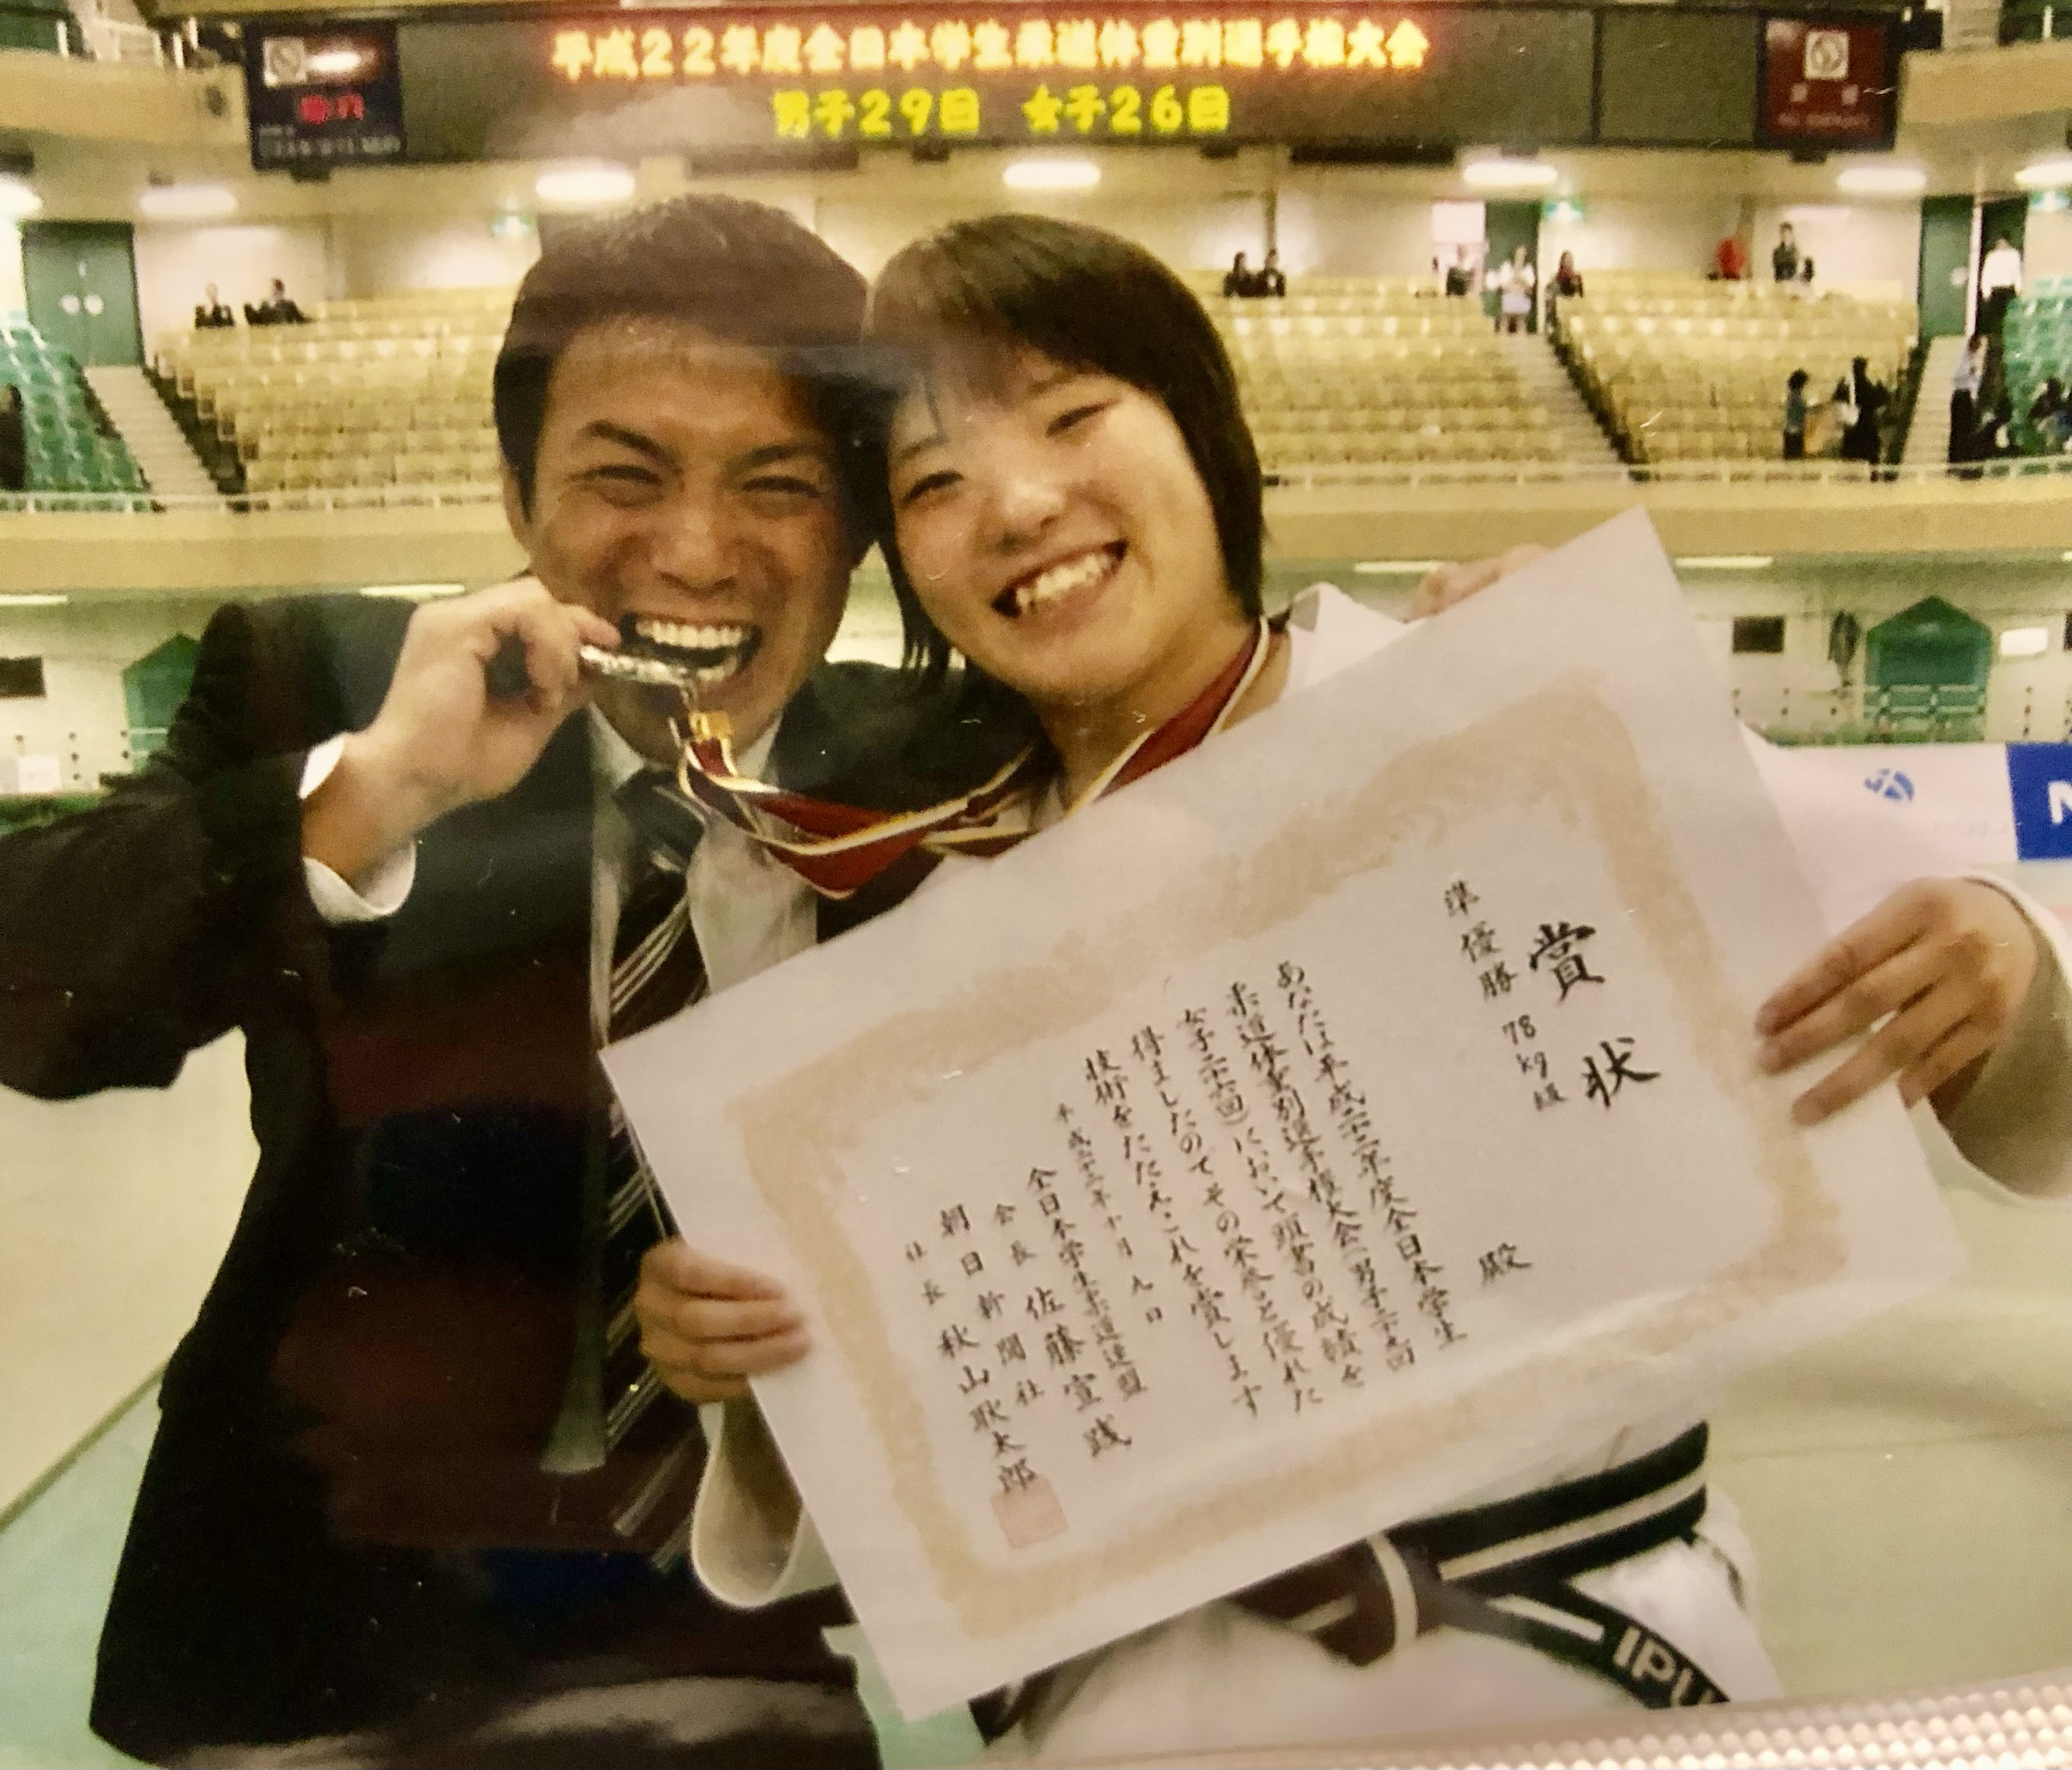 平成22年度全日本学生柔道体重別選手権大会
男子29回 女子26回
賞状
準優勝 78kg級
殿
あなたは平成二十二年度全日本学生
柔道体重別選手権大会(男子二十九回
女子二十六回)において頭書の成績を
得ましたのでその栄誉と優れた
技術をたたえこれを賞します
平成二十二年十月九日
全日本学生柔道連盟
会長 佐藤宣践
朝日新聞社
社長 秋山耿太郎
IPU